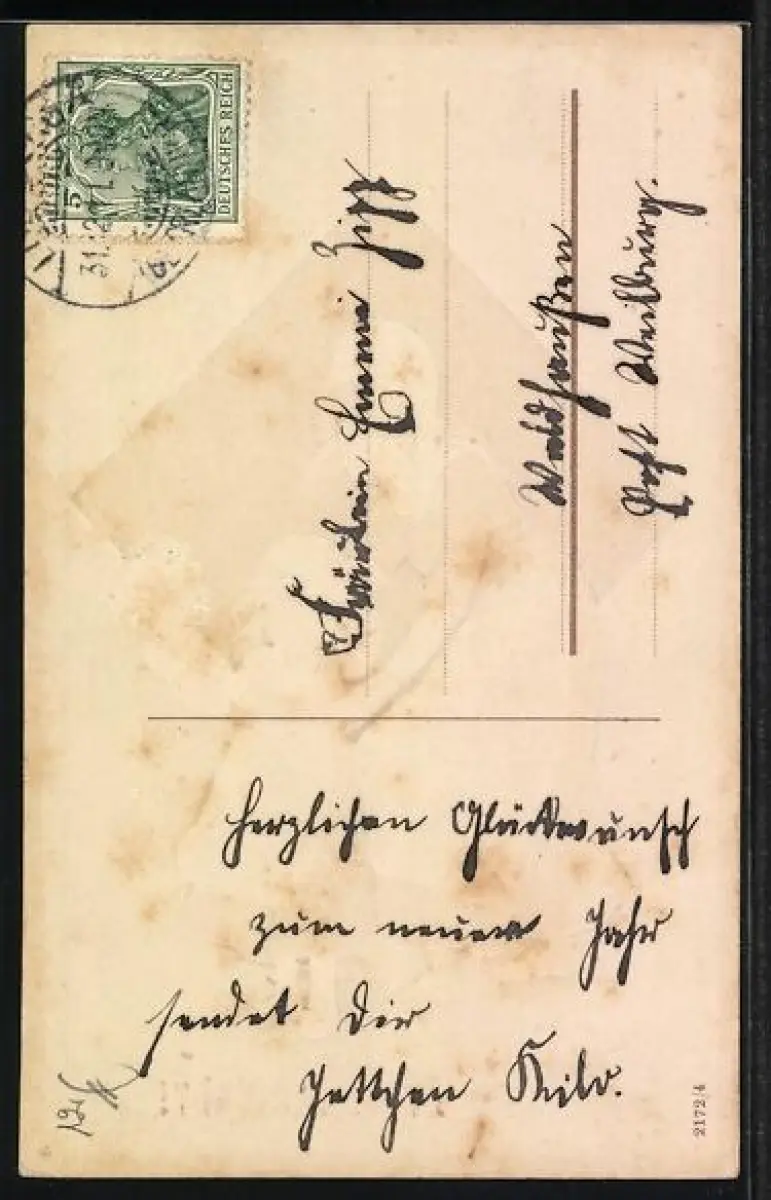 DEUTSCHES REICH
5
31.12
Fräulein Emmi Zipp
Waldhausen
Post Weilburg.
Herzlichen Glückwunsch
zum neuen Jahr
sendet Dir
Jettchen
2172/4